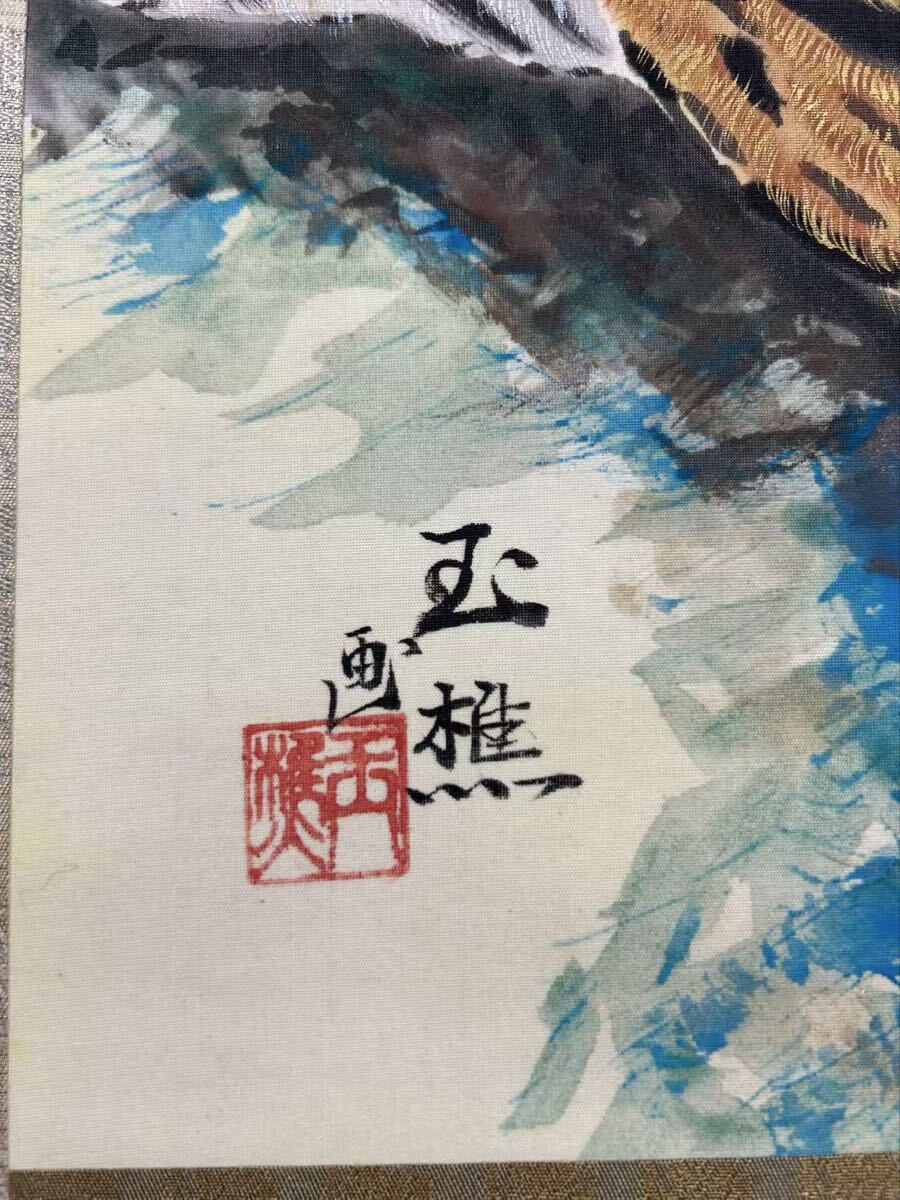 玉樵
画
玉樵